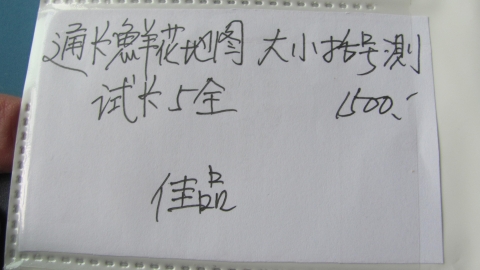 通长鲜花地图 大小括号测
试长5全 1500.-
佳品